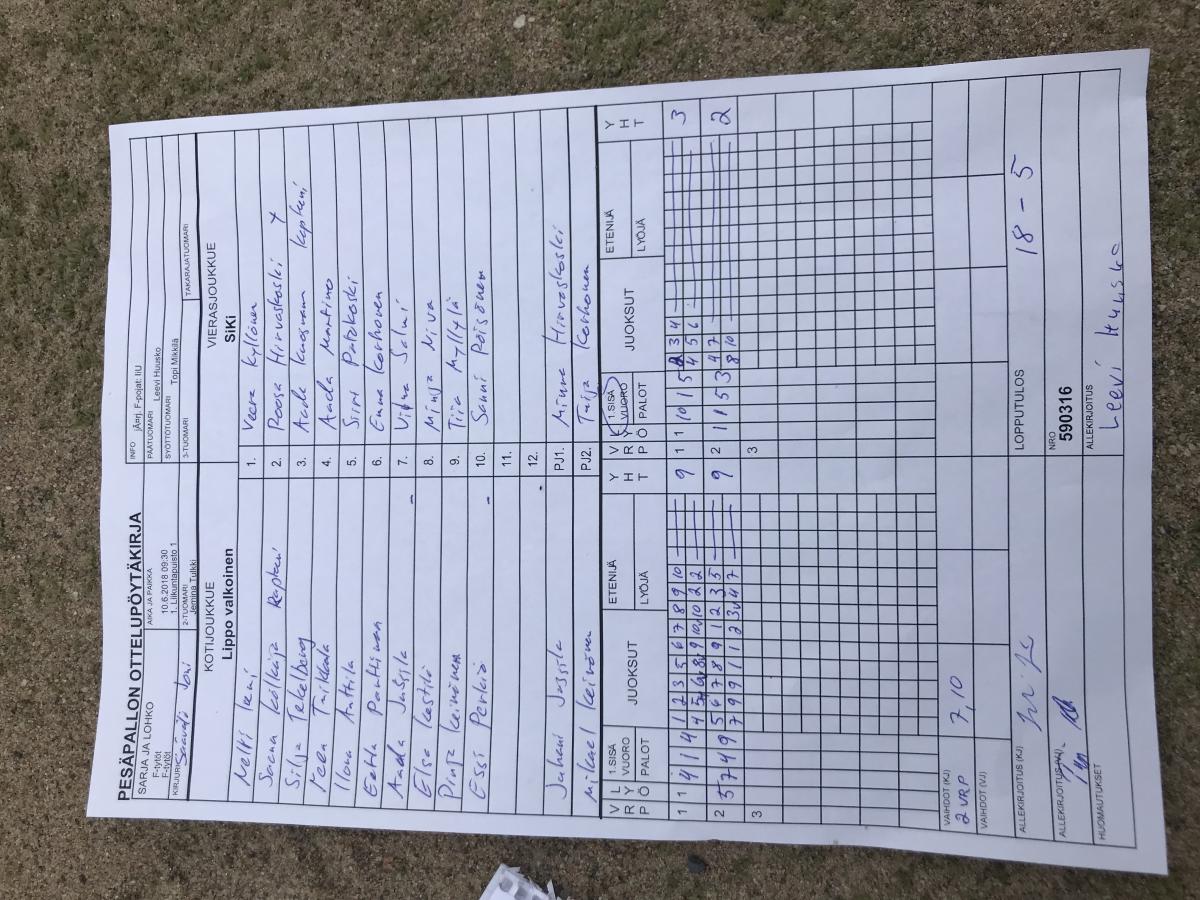 PESÄPALLON OTTELUPÖYTÄKIRJA
SARJA JA LOHKO
F-tytöt
F-tytöt
AIKA JA PAIKKA
10.6.2018 09:30
1. Liikuntapuisto 1
INFO jÄprj. F-pojat: IiU
PÄÄTUOMARI Leevi Huusko
SYÖTTÖTUOMARI Topi Mikkilä
KIRJURI Joni
2-TUOMARI
Jemina Tulkki
3-TUOMARI
TAKARAJATUOMARI
KOTIJOUKKUE
Lippo valkoinen
VIERASJOUKKUE
SiKi
Nelli
1. Veera Kyllönen
Saana Kapteeni
2. Roosa Hirvaskoski
Silja
3. Kapteeni
Teea Taikkala
4. Aada Martino
Ilona Anttila
5. Siiri Patokoski
Eetta Panttinen
6. Emma Korhonen
Aada Jussila -
7. Vilma Salmi
Elsa Kestilä
8. Minja Niva
Pinja Keinönen
9. Tiia Myllylä
Essi Perkiö -
10. Sanni Poisänen
11.
12.
Juhani Jussila
PJ1. Minna Hirvaskoski
Mikael Keinönen
PJ2. Taija Korhonen
V R P
L Y Ö
1.SISÄ VUORO
PALOT
JUOKSUT
ETENIJÄ
LYÖJÄ
Y H T
V R P
L Y Ö
1.SISÄ VUORO
PALOT
JUOKSUT
ETENIJÄ
LYÖJÄ
Y H T
1 1 4 1 4
1 2 3 5 6 7 8 9 10
9
1 1 10 1 5
2 3 4
4 5 6
3
2 5 7 4 9
5 6 7 8 9 1 2 3 5
7 9 9 1 1 2 3 4 7
9
2 1 1 5 3
4 7
8 10
2
3
3
VAIHDOT (KJ)
2 VRP 7, 10
VAIHDOT (VJ)
ALLEKIRJOITUS (KJ)
LOPPUTULOS 18 - 5
ALLEKIRJOITUS (VJ)
NRO
590316
HUOMAUTUKSET
ALLEKIRJOITUS
Leevi Huusko